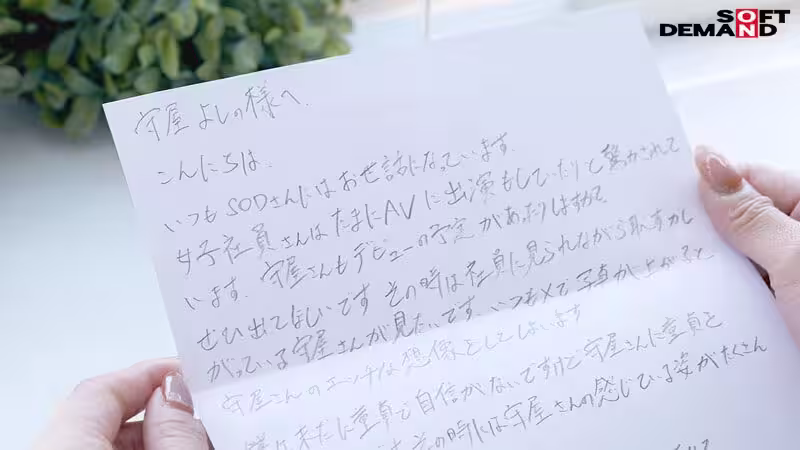 SOFT ON
DEMAND
守屋よしの様へ
こんにちは。
いつもSODさんにはお世話になっています。
女子社員さんはたまにAVに出演もしていたりと驚かされて
います。守屋さんもデビューの予定があったりはすか?
ぜひ出てほしいです その時は社員に見られながら恥ずかし
がっている守屋さんが見たいです いつもXで写真が上がると
守屋さんのエッチな想像をしてしまいます
僕は未だに童貞で自信がないですけど守屋さんに童貞を
その時には守屋さんの感じている姿がたくさん